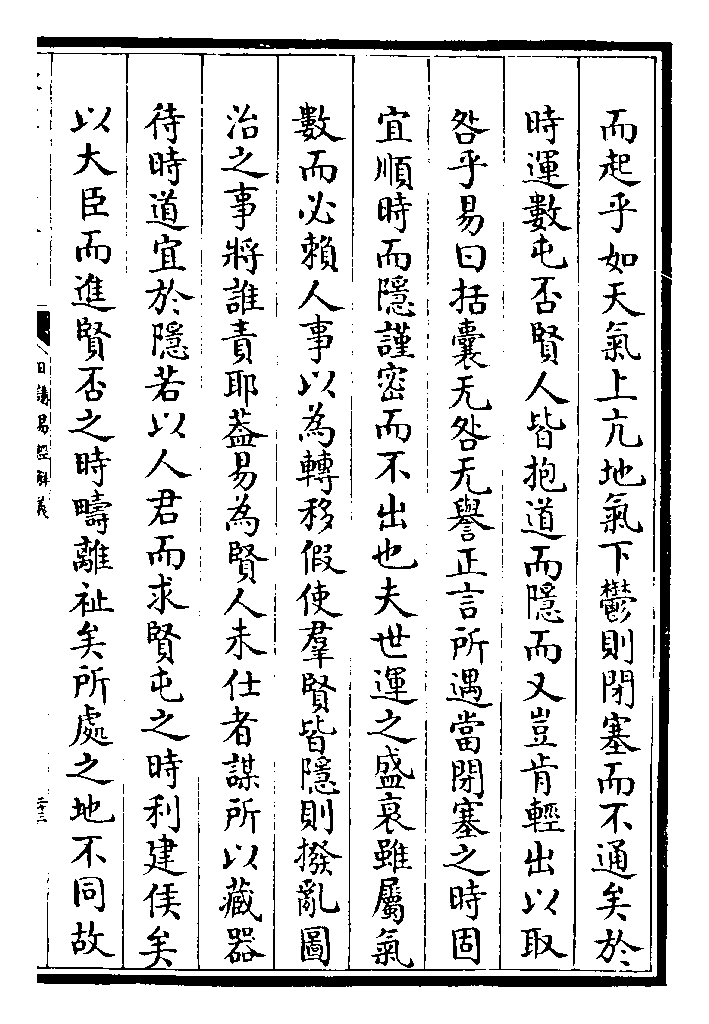 而起乎如天氣上亢地氣下鬱則閉塞而不通矣於
時運數屯否賢人皆抱道而隱而又豈肯輕出以取
咎乎易曰括囊无咎无譽正言所遇當閉塞之時固
宜順時而隱謹密而不出也夫世運之盛衰雖屬氣
數而必賴人事以為轉移假使羣賢皆隱則撥亂圖
治之事將誰責耶葢易為賢人未仕者謀所以藏器
待時道宜於隱若以人君而求賢屯之時利建侯矣
以大臣而進賢否之時疇離祉矣所處之地不同故
日講易經解義